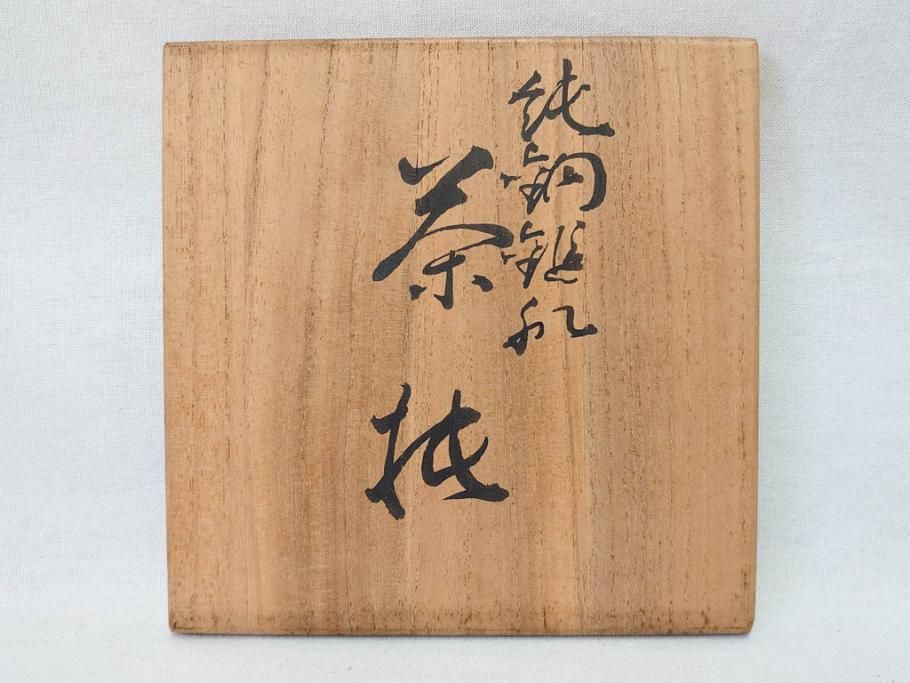 純銅鎚肌
茶托